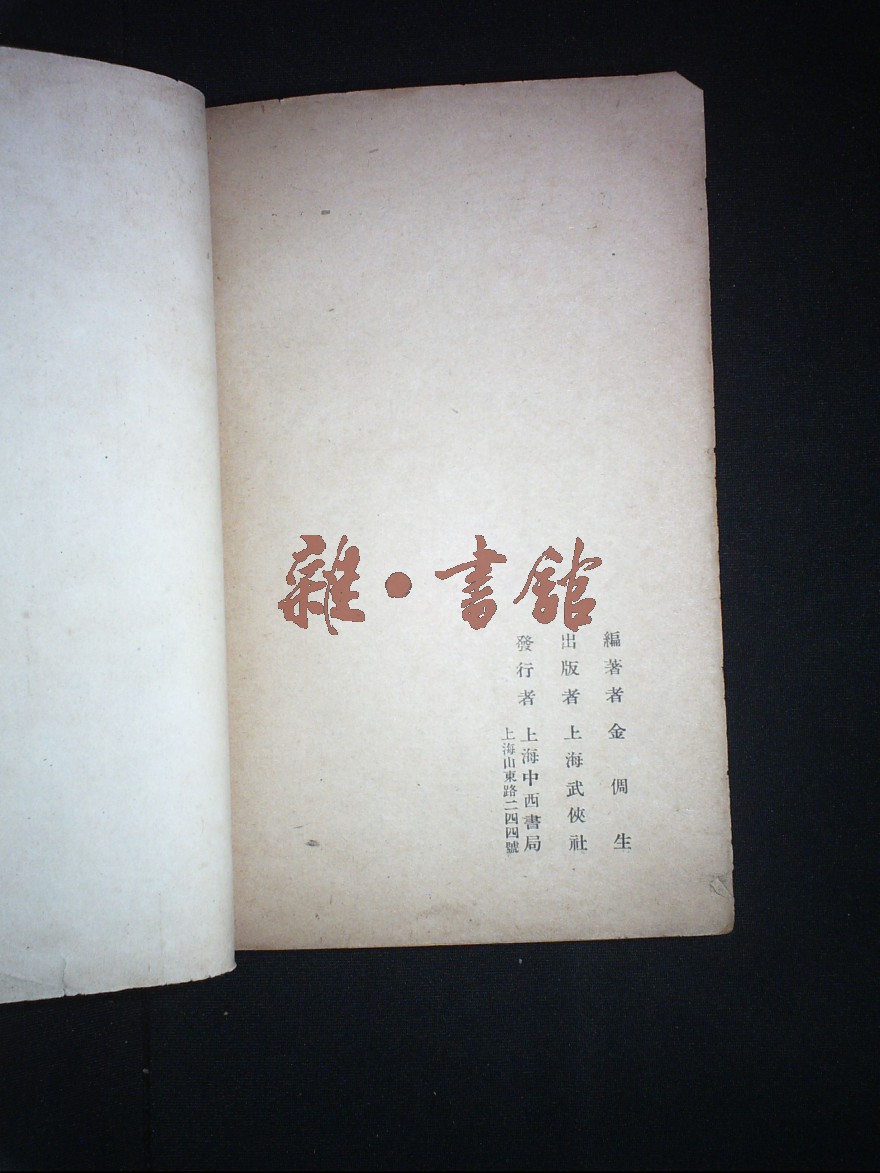 雜·書館
編著者 金倜生
出版者 上海武俠社
發行者 上海中西書局
上海山東路二四四號